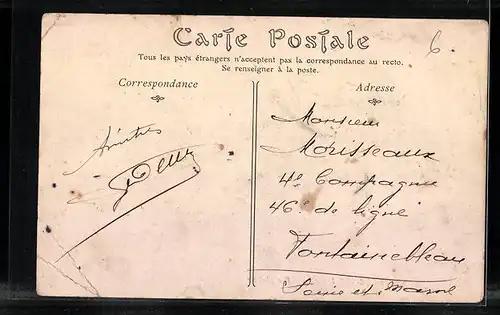 Carte Postale
6
Tous les pays étrangers n'acceptent pas la correspondance au recto.
Se renseigner à la poste.
Correspondance
Amitiés
Adresse
Monsieur
Mousseaux
4e Compagnie
46e de ligne
Fontainebleau
Seine et Marne